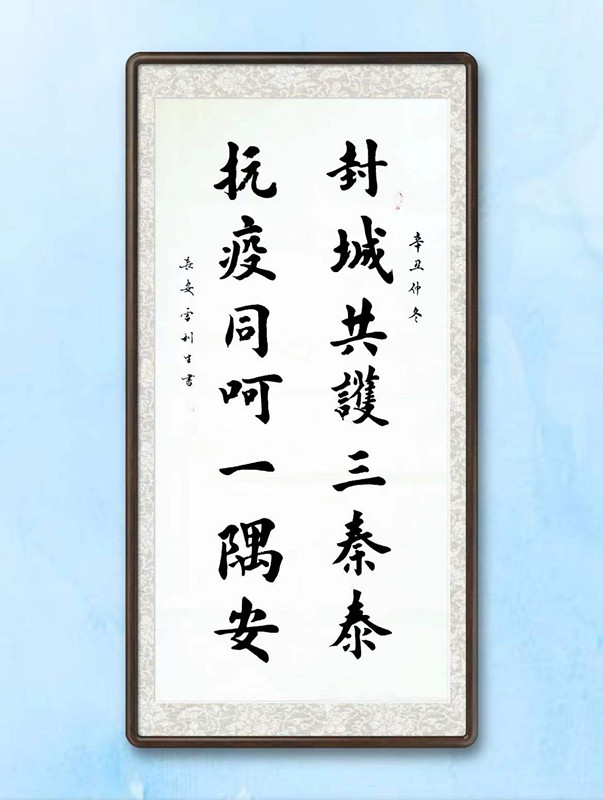 辛丑仲冬
封城共護三秦泰
抗疫同呵一隅安
長安利生書